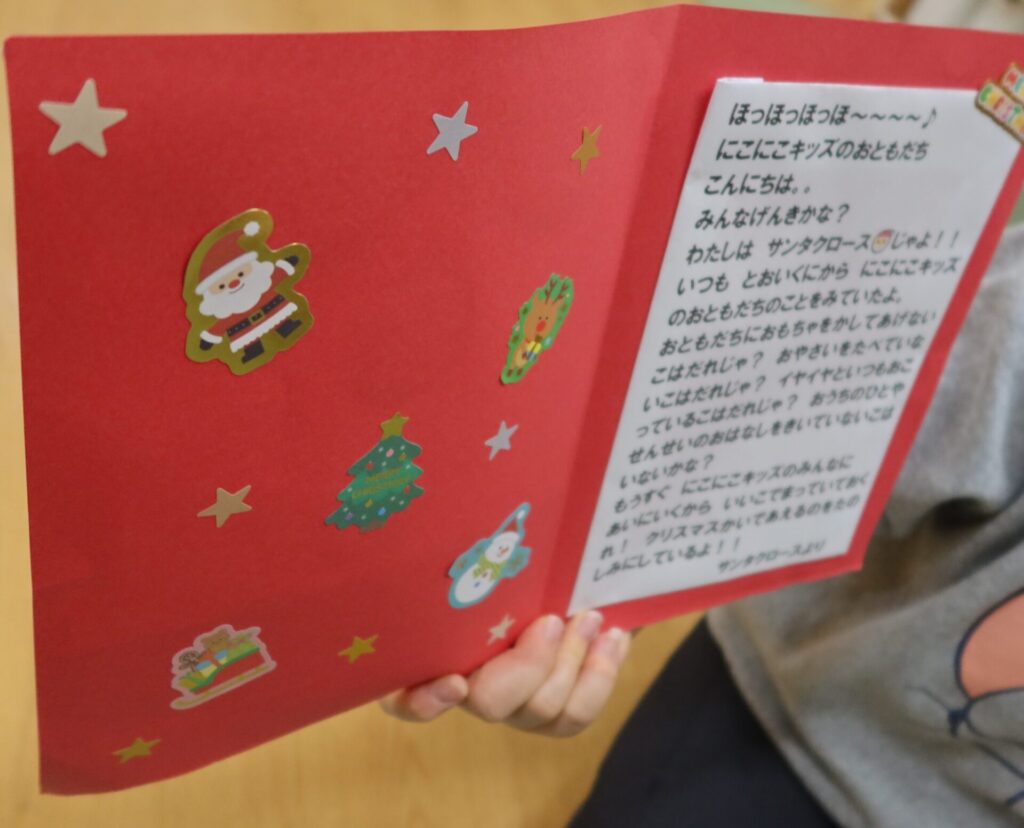 ほっほっほっほ～～～～♪
にこにこキッズのおともだち
こんにちは。。
みんなげんきかな？
わたしは サンタクロース🎅じゃよ！！
いつも とおいくにから にこにこキッズ
のおともだちのことをみていたよ。
おともだちにおもちゃをかしてあげない
こはだれじゃ？ おやさいをたべていな
いこはだれじゃ？ イヤイヤといつもおこ
っているこはだれじゃ？ おうちのひとや
せんせいのおはなしをきいていないこは
いないかな？
もうすぐ にこにこキッズのみんなに
あいにいくから いいこでまっていておく
れ！ クリスマスかいであえるのをたの
しみにしているよ！！
サンタクロースより
MERRY
CHRISTMAS